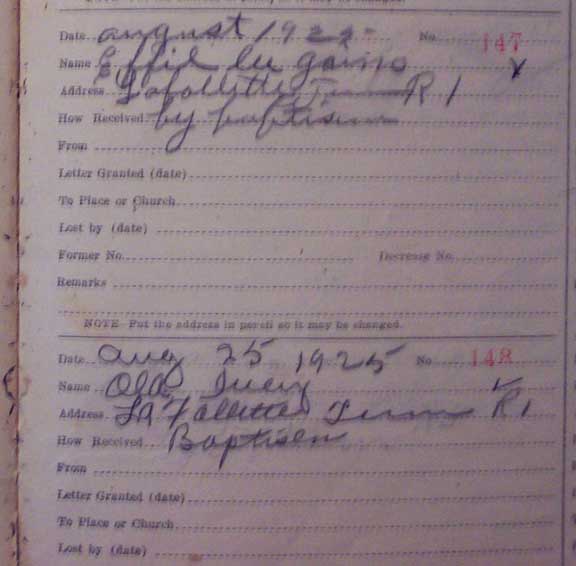 Date august 192 No. 147
Name Effie Goins
Address Lafollette Tenn R 1
How Received by baptism
From
Letter Granted (date)
To Place or Church
Lost by (date)
Former No. Decrease No.
Remarks
NOTE Put the address in pencil so it may be changed.
Date aug 25 1925 No 148
Name Ivey
Address La Follette Tenn R1
How Received Baptisem
From
Letter Granted (date)
To Place or Church
Lost by (date)